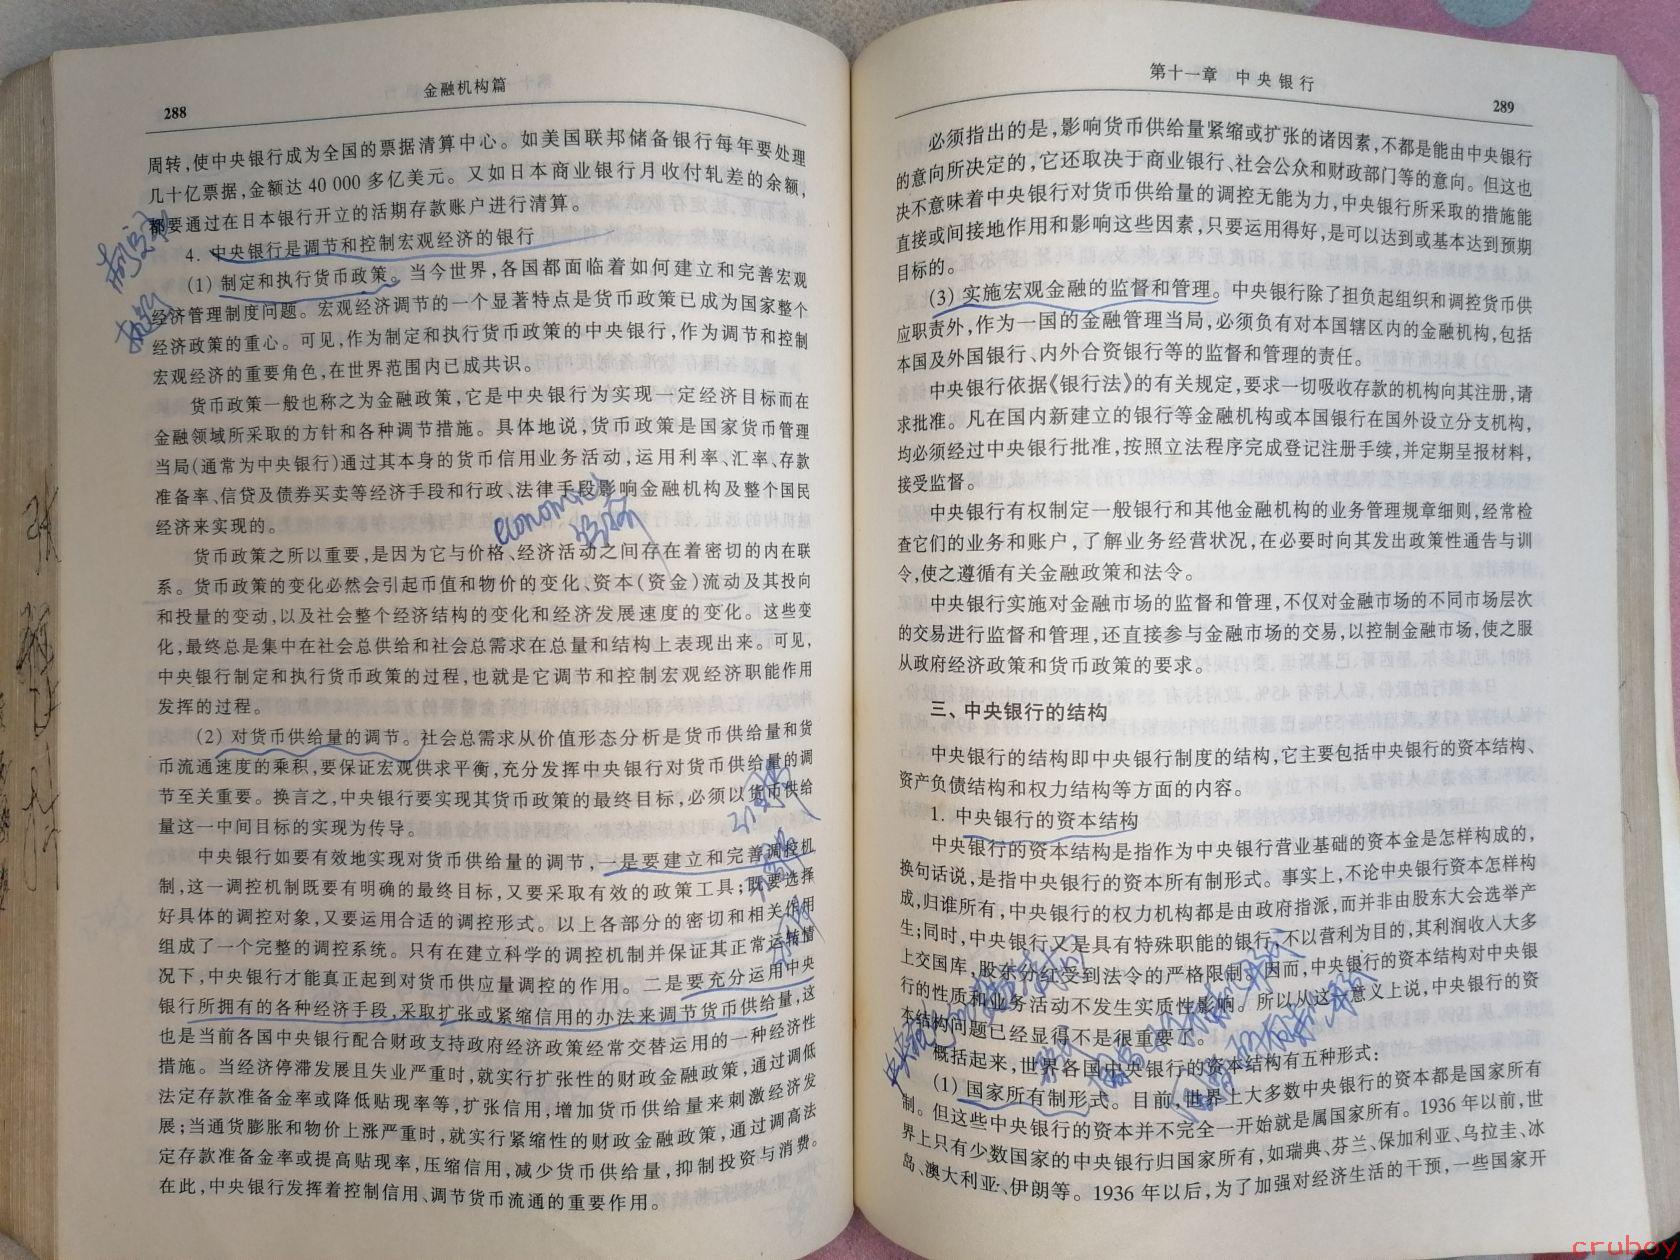 288
金融机构篇
周转,使中央银行成为全国的票据清算中心。如美国联邦储备银行每年要处理
几十亿票据,金额达 40 000 多亿美元。又如日本商业银行月收付轧差的余额,
都要通过在日本银行开立的活期存款账户进行清算。
4. 中央银行是调节和控制宏观经济的银行
(1) 制定和执行货币政策。当今世界,各国都面临着如何建立和完善宏观
经济管理制度问题。宏观经济调节的一个显著特点是货币政策已成为国家整个
经济政策的重心。可见,作为制定和执行货币政策的中央银行,作为调节和控制
宏观经济的重要角色,在世界范围内已成共识。
货币政策一般也称之为金融政策,它是中央银行为实现一定经济目标而在
金融领域所采取的方针和各种调节措施。具体地说,货币政策是国家货币管理
当局(通常为中央银行)通过其本身的货币信用业务活动,运用利率、汇率、存款
准备率、信贷及债券买卖等经济手段和行政、法律手段影响金融机构及整个国民
经济来实现的。
economic
货币政策之所以重要,是因为它与价格、经济活动之间存在着密切的内在联
系。货币政策的变化必然会引起币值和物价的变化、资本(资金)流动及其投向
和投量的变动,以及社会整个经济结构的变化和经济发展速度的变化。这些变
化,最终总是集中在社会总供给和社会总需求在总量和结构上表现出来。可见,
中央银行制定和执行货币政策的过程,也就是它调节和控制宏观经济职能作用
发挥的过程。
(2) 对货币供给量的调节。社会总需求从价值形态分析是货币供给量和货
币流通速度的乘积,要保证宏观供求平衡,充分发挥中央银行对货币供给量的调
节至关重要。换言之,中央银行要实现其货币政策的最终目标,必须以货币供给
量这一中间目标的实现为传导。
中央银行如要有效地实现对货币供给量的调节,一是要建立和完善调控机
制,这一调控机制既要有明确的最终目标,又要采取有效的政策工具;既要选择
好具体的调控对象,又要运用合适的调控形式。以上各部分的密切和相关作用
组成了一个完整的调控系统。只有在建立科学的调控机制并保证其正常运转情
况下,中央银行才能真正起到对货币供应量调控的作用。二是要充分运用中央
银行所拥有的各种经济手段,采取扩张或紧缩信用的办法来调节货币供给量,这
也是当前各国中央银行配合财政支持政府经济政策经常交替运用的一种经济性
措施。当经济停滞发展且失业严重时,就实行扩张性的财政金融政策,通过调低
法定存款准备金率或降低贴现率等,扩张信用,增加货币供给量来刺激经济发
展;当通货膨胀和物价上涨严重时,就实行紧缩性的财政金融政策,通过调高法
定存款准备金率或提高贴现率,压缩信用,减少货币供给量,抑制投资与消费。
在此,中央银行发挥着控制信用、调节货币流通的重要作用。
第十一章 中央银行
289
必须指出的是,影响货币供给量紧缩或扩张的诸因素,不都是能由中央银行
的意向所决定的,它还取决于商业银行、社会公众和财政部门等的意向。但这也
决不意味着中央银行对货币供给量的调控无能为力,中央银行所采取的措施能
直接或间接地作用和影响这些因素,只要运用得好,是可以达到或基本达到预期
目标的。
(3) 实施宏观金融的监督和管理。中央银行除了担负起组织和调控货币供
应职责外,作为一国的金融管理当局,必须负有对本国辖区内的金融机构,包括
本国及外国银行、内外合资银行等的监督和管理的责任。
中央银行依据《银行法》的有关规定,要求一切吸收存款的机构向其注册,请
求批准。凡在国内新建立的银行等金融机构或本国银行在国外设立分支机构,
均必须经过中央银行批准,按照立法程序完成登记注册手续,并定期呈报材料,
接受监督。
中央银行有权制定一般银行和其他金融机构的业务管理规章细则,经常检
查它们的业务和账户,了解业务经营状况,在必要时向其发出政策性通告与训
令,使之遵循有关金融政策和法令。
中央银行实施对金融市场的监督和管理,不仅对金融市场的不同市场层次
的交易进行监督和管理,还直接参与金融市场的交易,以控制金融市场,使之服
从政府经济政策和货币政策的要求。
三、中央银行的结构
中央银行的结构即中央银行制度的结构,它主要包括中央银行的资本结构、
资产负债结构和权力结构等方面的内容。
1. 中央银行的资本结构
中央银行的资本结构是指作为中央银行营业基础的资本金是怎样构成的,
换句话说,是指中央银行的资本所有制形式。事实上,不论中央银行资本怎样构
成,归谁所有,中央银行的权力机构都是由政府指派,而并非由股东大会选举产
生;同时,中央银行又是具有特殊职能的银行,不以营利为目的,其利润收入大多
上交国库,股东分红受到法令的严格限制。因而,中央银行的资本结构对中央银
行的性质和业务活动不发生实质性影响。所以从这一意义上说,中央银行的资
本结构问题已经显得不是很重要了。
概括起来,世界各国中央银行的资本结构有五种形式:
(1) 国家所有制形式。目前,世界上大多数中央银行的资本都是国家所有
制。但这些中央银行的资本并不完全一开始就是属国家所有。1936 年以前,世
界上只有少数国家的中央银行归国家所有,如瑞典、芬兰、保加利亚、乌拉圭、冰
岛、澳大利亚、伊朗等。1936 年以后,为了加强对经济生活的干预,一些国家开
cruboy